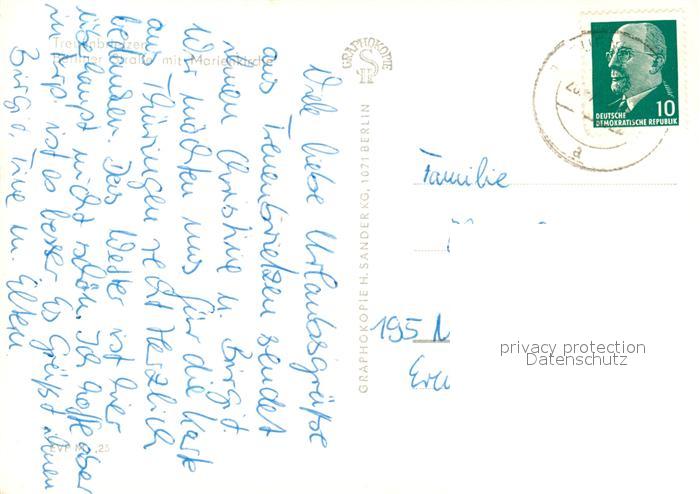 Treuenbrietzen
Berliner Straße mit Marienkirche
Viele liebe Urlaubsgrüße
aus Treuenbrietzen sendet
Ihnen Christine u. Birgit.
Wir möchten uns für die Karte
aus Thüringen recht herzlich
bedanken. Das Wetter ist hier
überhaupt nicht schön. Ich hoffe aber
in ist es besser. Es Grüßt Ihnen
Birgit, u. Eltern
EVP M ,25
GRAPHOKOPIE
GRAPHOKOPIE H. SANDER KG, 1071 BERLIN
10
DEUTSCHE
DEMOKRATISCHE REPUBLIK
a
Familie
195 N
privacy protection
Datenschutz